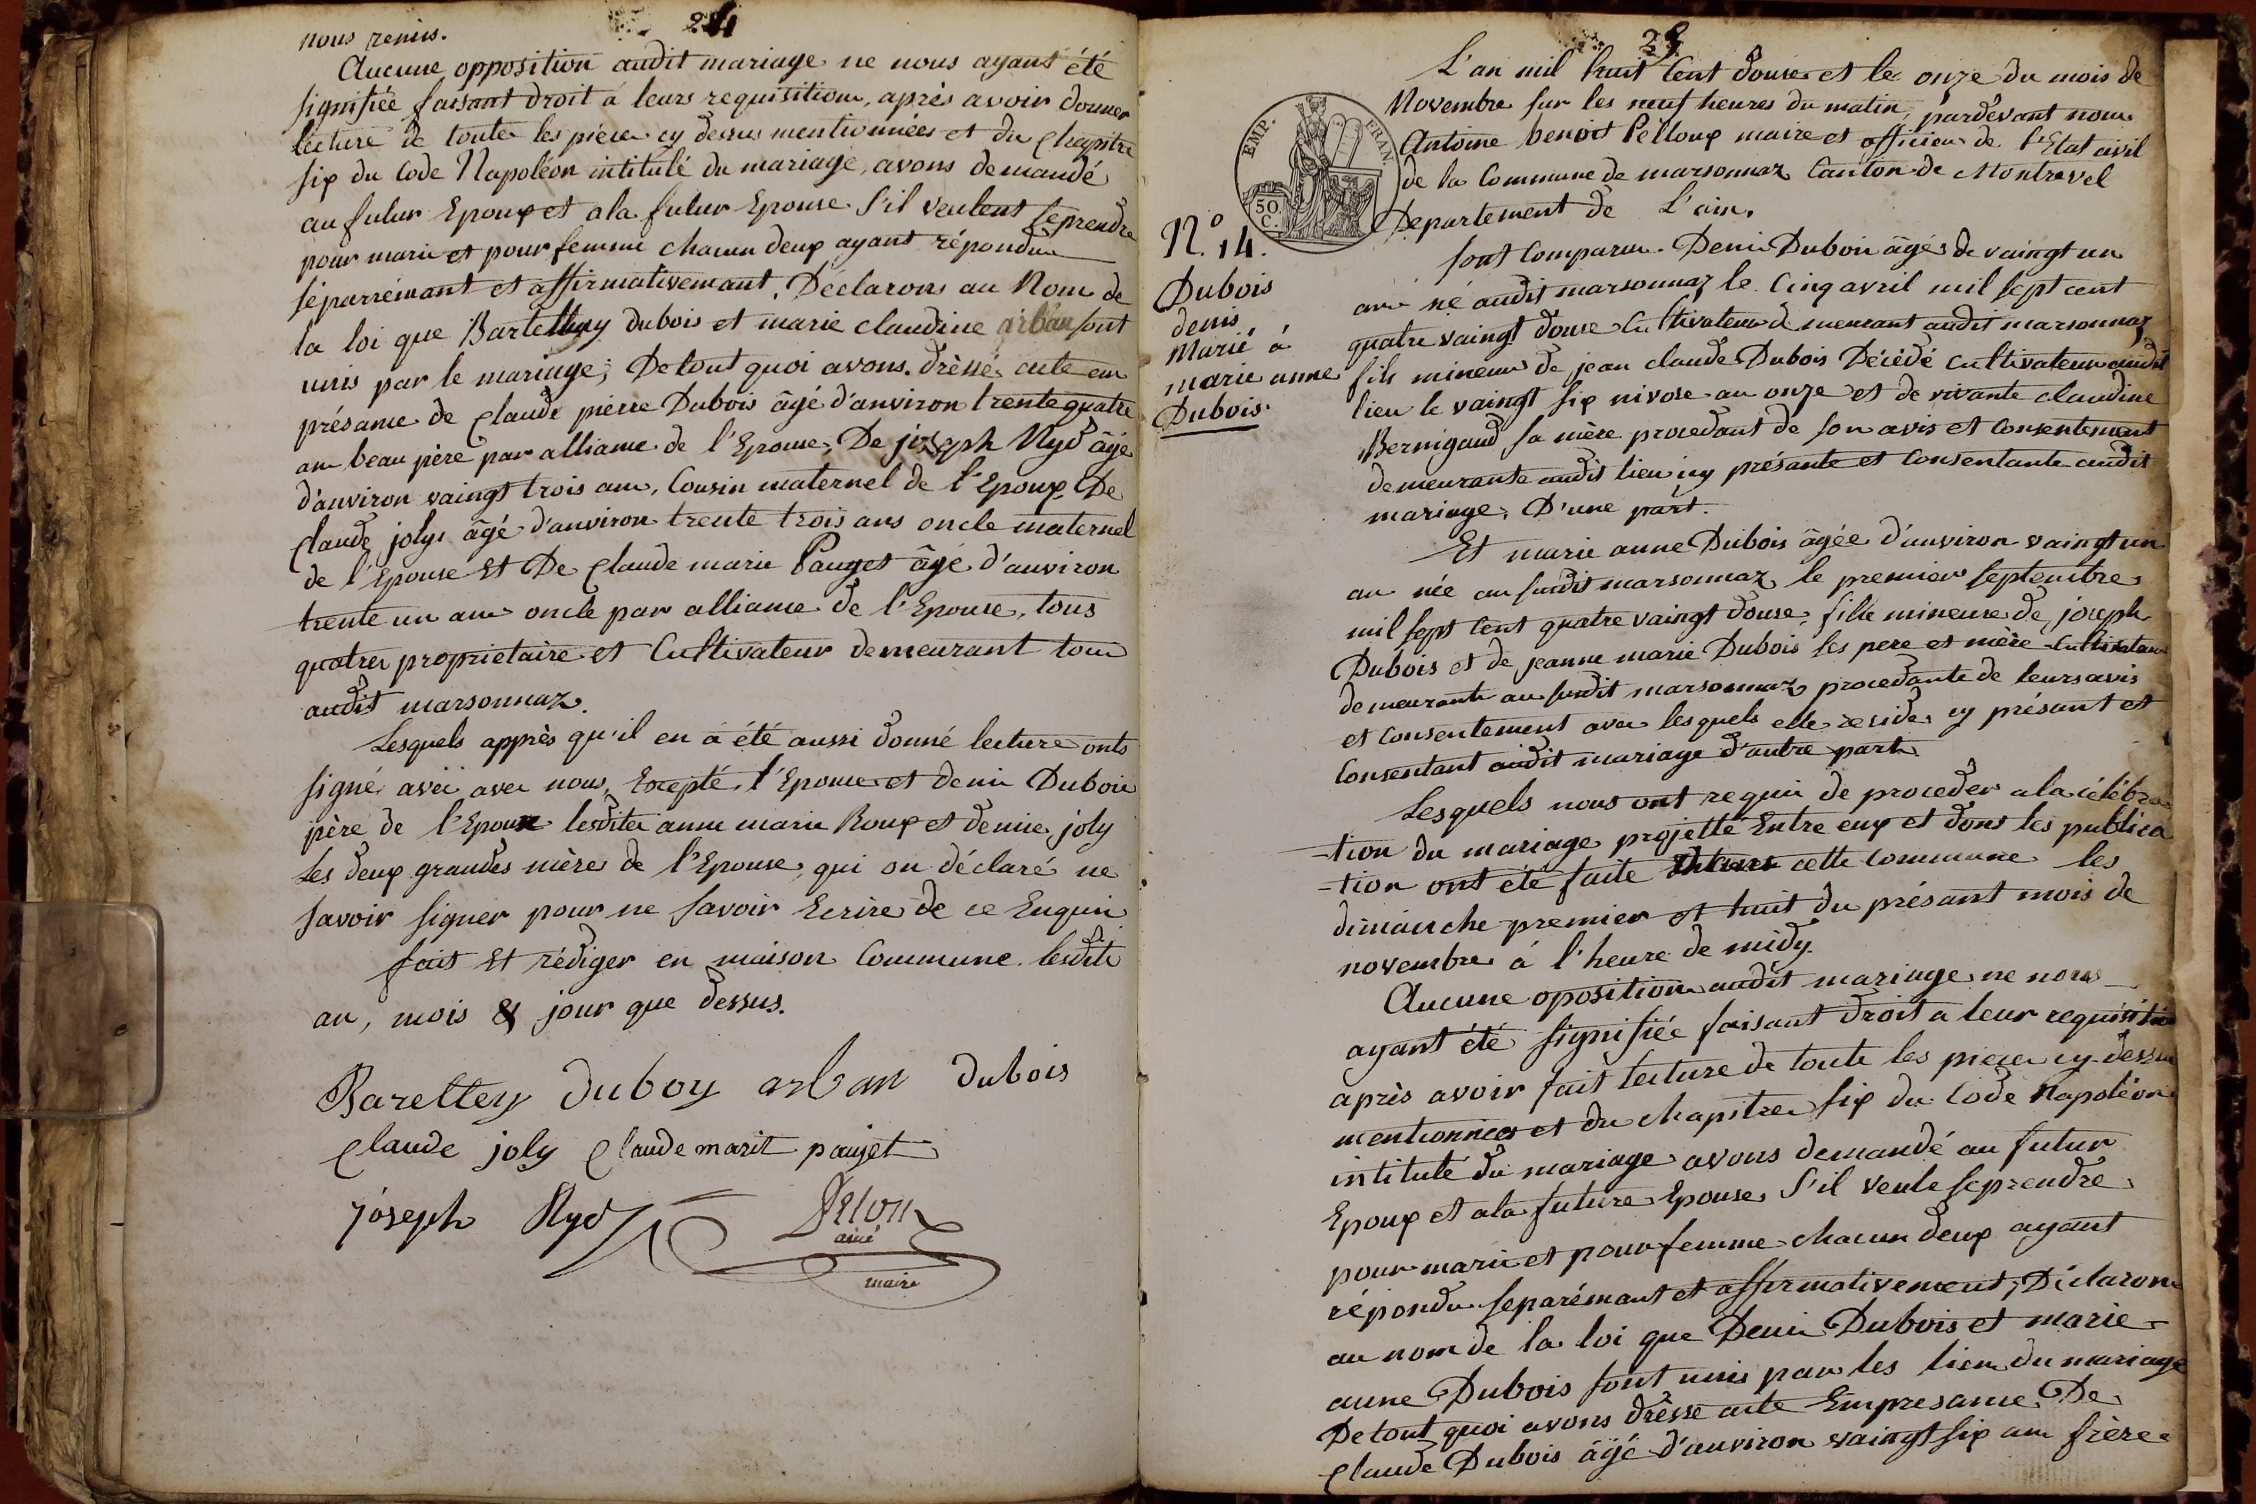 24
nous remis.
Aucune opposition audit mariage ne nous ayant été
signifiée faisant droit a leurs requisition, après avoir donner
lecture de toute les piece cy dessus mentionnées et du chapitre
six du Code Napoléon intitulé du mariage, avons demandé
au futur Epoux et a la futur Epouse S'il veulent se prendre
pour marie et pour femme chacun deux ayant répondu
séparrémant et affirmativemant, Déclarons au Nom de
la loi que Bartelmy dubois et marie claudine arban sont
unis par le mariage; De tout quoi avons dressé acte en
présance de claude pierre Dubois âgé d'anviron trente quatre
ans beau père par alliance de l'Epouse, De joseph Nyd âgé
d'anviron vaingt trois ans, Cousin maternel de l'Epoux De
claude joly âgé d'anviron trente trois ans oncle maternel
de l'Epouse Et De claude marie Pauget âgé d'anviron
trente un ans oncle par alliance de l'Epouse, tous
quatre proprietaire et Cultivateur demeurant tous
audit marsonnaz.
Lesquels apprès qu'il en a été aussi donné lecture onts
signé avec nous, Excepté l'Epouse et denis Dubois
père de l'Epoux lesdites anne marie Roux et denise joly
Les deux grandes mères de l'Epouse, qui on déclaré ne
savoir signer pour ne savoir Ecrire de ce Enquis
fait Et rédiger en maison Commune lesdits
an, mois & jour que dessus.
Bareltey duboy arban dubois
claude joly claude marit paujet
joseph Nyd Pelou
ainé
maire
29
L'an mil huit Cent douse et le onze du mois de
Novembre sur les neuf heures du matin, pardevant nous
Antoine benoit Pelloux maire et officier de l'Etat civil
de la Commune de marsonnaz Canton de Montrevel
Departement de L'ain.
EMP. FRAN
50. C.
N.º 14.
Dubois
denis
Marié à
marie anne
Dubois.
sont comparu Denis Dubois âgés de vaingt un
ans né audit marsonnaz le Cinq avril mil sept cent
quatre vaingt douse Cultivateur demeurant audit marsonnaz,
fils mineur de jean claude Dubois Décédé cultivateur audit
lieu le vaingt six nivose an onze et de vivante claudine
Bernigaud sa mère procedant de son avis et Consentement
demeurante audit lieu icy présante et Consentante audit
mariage, D'une part.
Et marie anne Dubois âgée d'anviron vaingt un
an née au susdit marsonnaz le premier septembre
mil sept Cent quatre vaingt douse, fille mineure de joseph
Dubois et de jeanne marie Dubois les pere et mère Cultivateur
demeurants au susdit marsonnaz procedante de leurs avis
et Consentement avec lesquels elle reside cy présant et
Consentant audit mariage d'autre part
Lesquels nous ont requis de proceder a la célébra
-tion du mariage projetté Entre eux et dont les publica
-tion ont été faite cette Commune les
dimanche premier et huit du présant mois de
novembre à l'heure de midy.
Aucune oposition audit mariage ne nous
ayant été signifiée faisant droit a leur requisition
après avoir fait lecture de toute les piece cy dessus
mentionnées et du chapitre six du Code Napoléon
intitulé du mariage avons demandé au futur
Epoux et a la future Epouse S'il veule se prendre
pour marie et pour femme chacun deux ayant
répondu separémant et affirmativement, Déclarons
au nom de la loi que Denis Dubois et marie
anne Dubois sont unis par les lien du mariage
De tout quoi avons drèsse acte En presance De
claude Dubois âgé d'anviron vaingt six ans frère